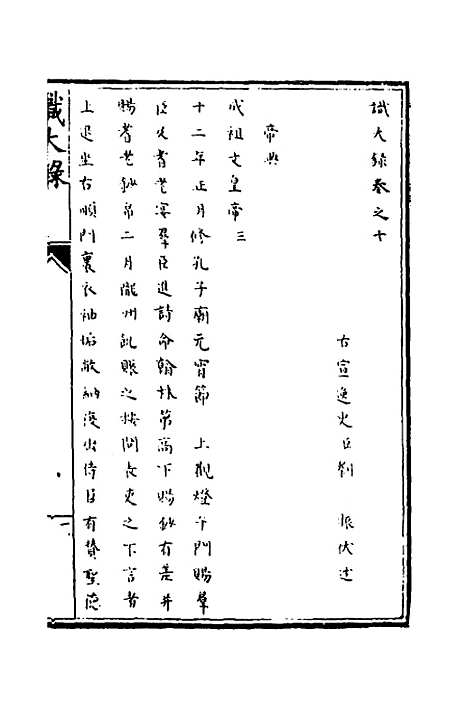 識大錄卷之十
古宣逸史臣劉 振伏述
帝典
成祖文皇帝三
十二年正月修孔子廟元宵節 上觀燈午門賜羣
臣及耆老宴羣臣進詩命翰林第高下賜鈔有差并
賜耆老鈔帛二月隴州飢賑之按問長吏之不言者
上退坐右順門裏衣袖垢敝納復出侍臣有贊聖德
識大錄
一